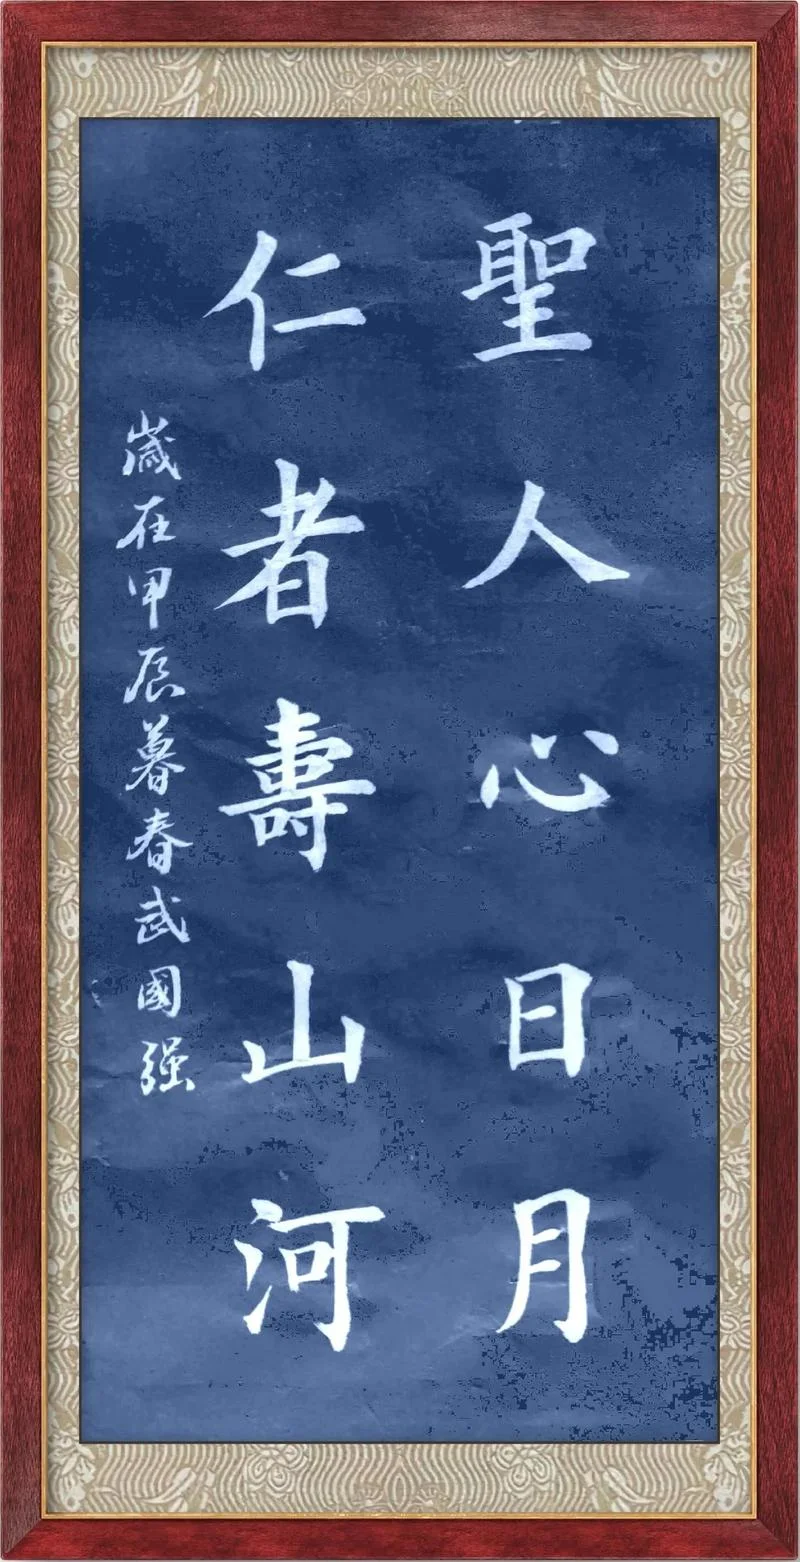 聖人心日月
仁者壽山河
歲在甲辰暮春武國强